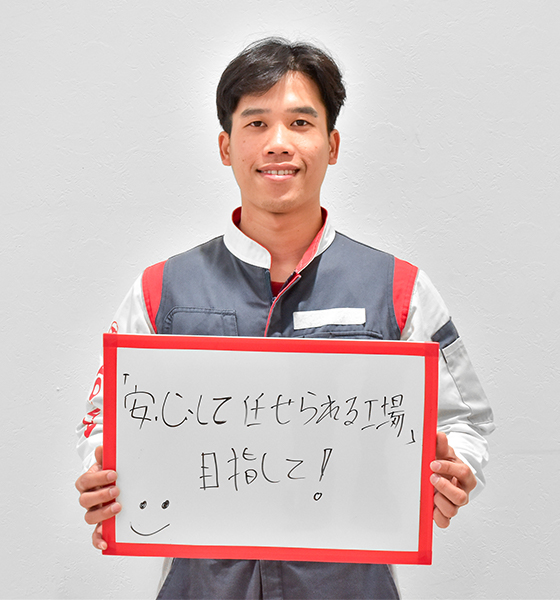 「安心して任せられる工場」
目指して!